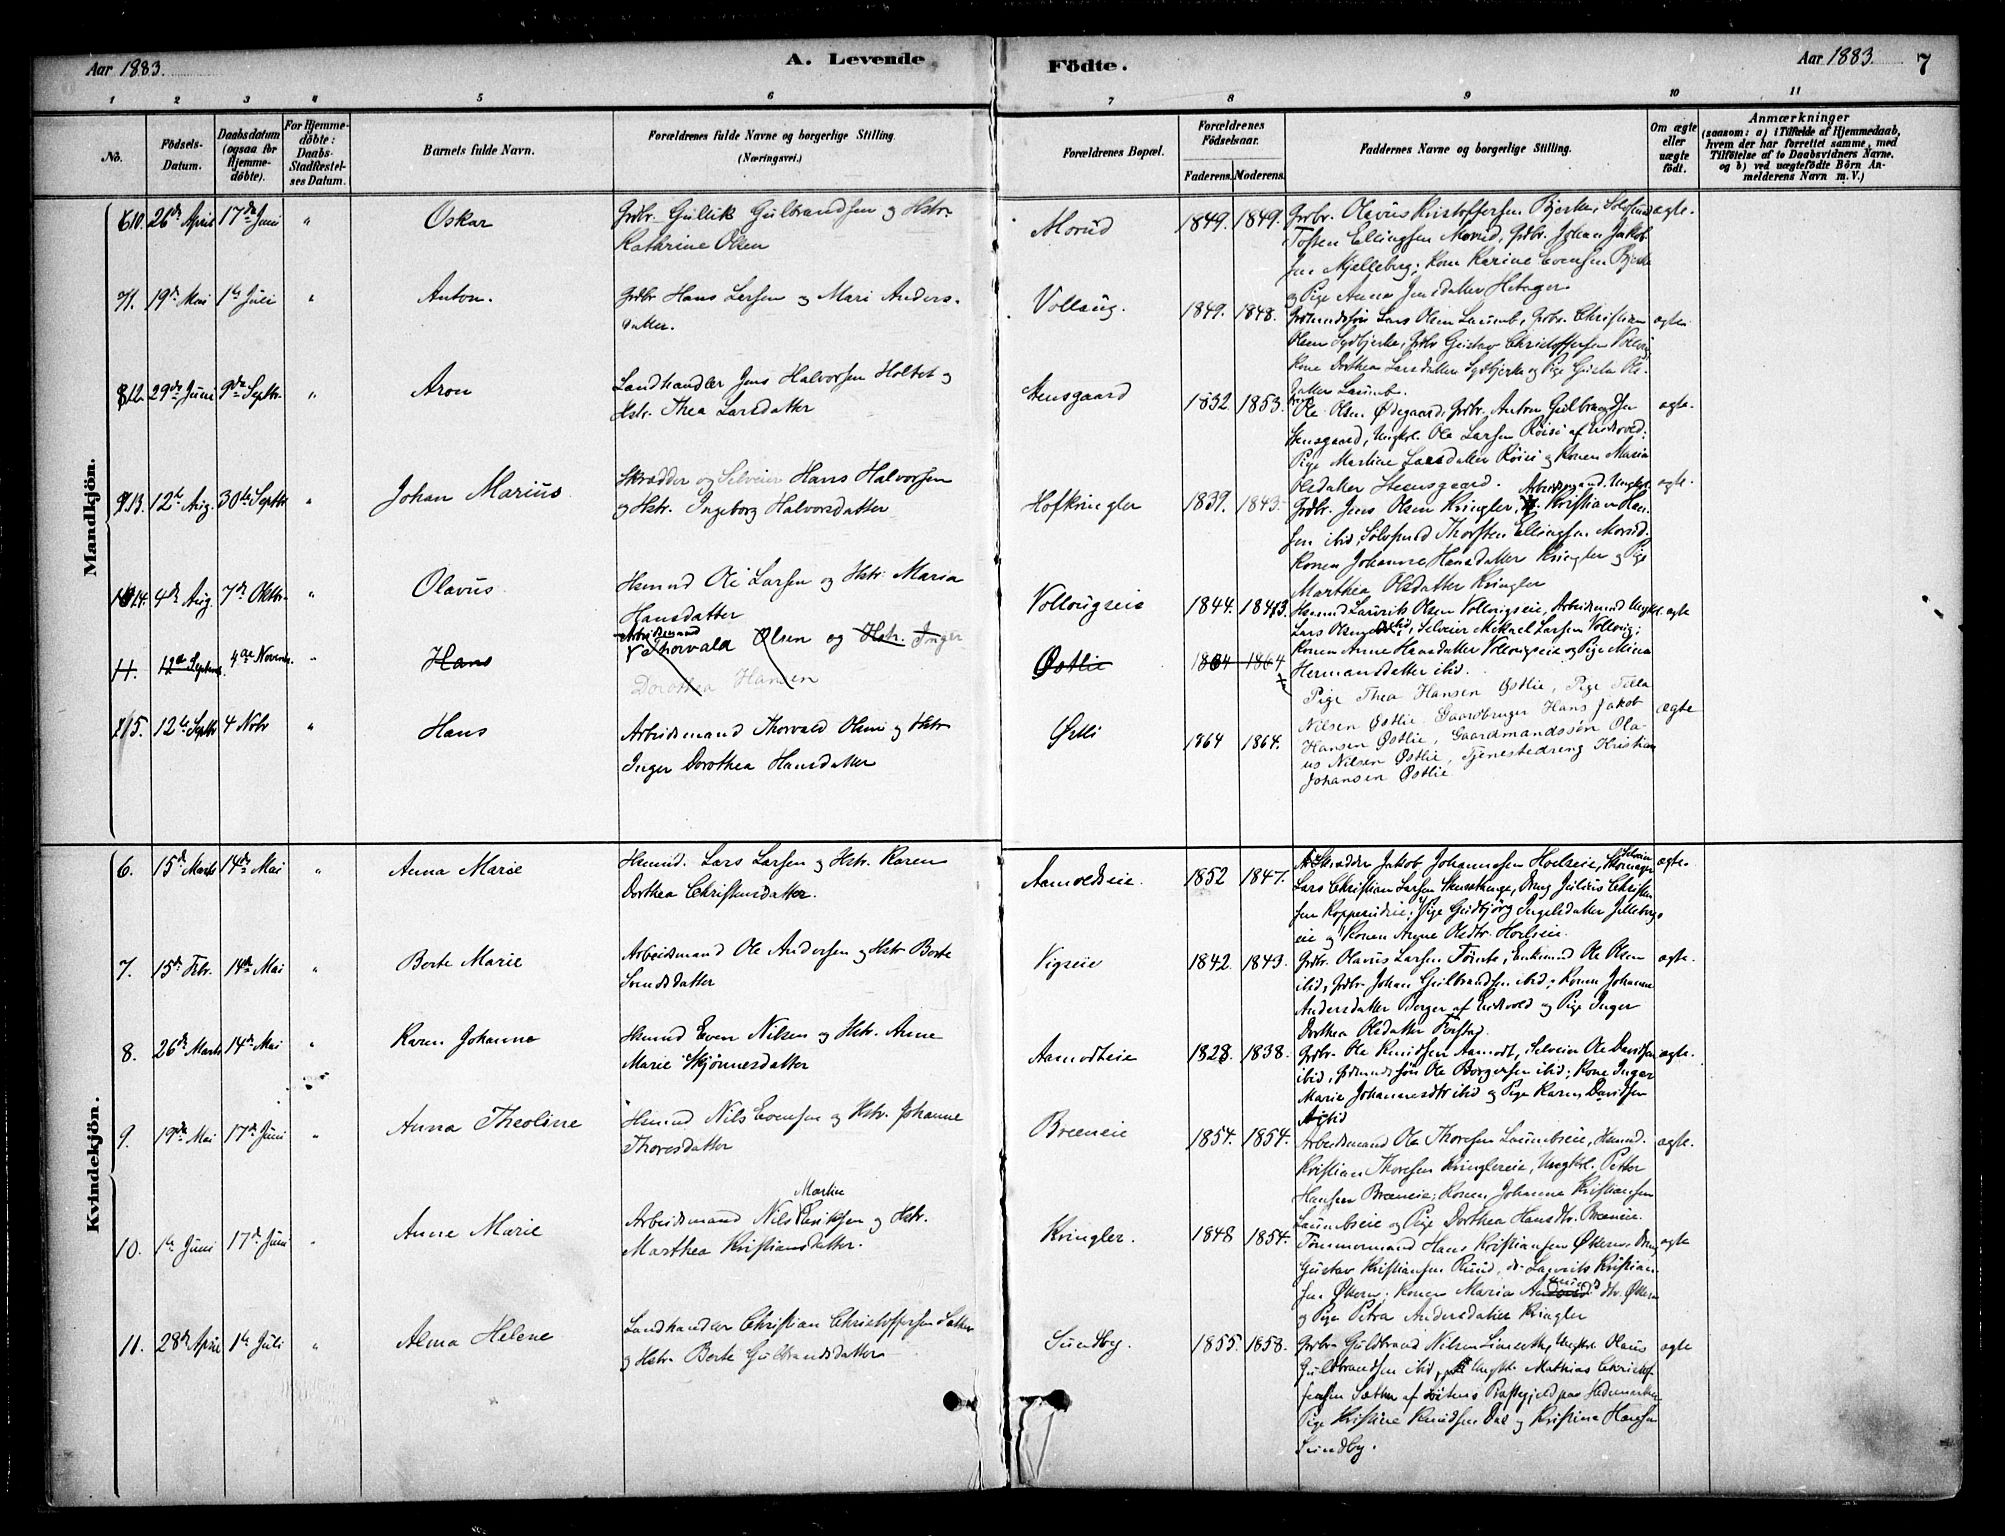 Aar 1883.
A. Levende
Födte.
Aar 1883.
7
1 2 3 4 5 6 7 8 9 10 11
No.
Födsels-Datum.
Daabsdatum (ogsaa for Hjemme-döbte).
For Hjemme-döbte: Daabs-Stadfæstel-ses Datum.
Barnets fulde Navn.
Forældrenes fulde Navne og borgerlige Stilling. (Næringsvei.)
Forældrenes Bopæl.
Forældrenes Födselsaar.
Faderens. Moderens.
Faddernes Navne og borgerlige Stilling.
Om ægte eller uægte födt.
Anmærkninger
(saasom: a) i Tilfælde af Hjemmedaab,
hvem der har forrettet samme, med
Tilföielse af to Daabsvidners Navne,
og b) ved uægtefödte Börn An-
melderens Navn m. V.)
Mandkjön.
10. 26de April 17de Juni " Oskar
Grdbr. Gullik Gulbrandsen og Hstr.
Kathrine Olsen
Morud 1849. 1849.
Grdbr. Olavus Kristoffersen Bjerke,
Tosten Ellingsen Morud, Grdbr. Johan Jakob-
sen Mjelleberg; Kone Karine Evensen Bjerke
og Pige Anna Jensdatter Hetager.
ægte.
11. 19de Mai 1ste Juli " Anton.
Grdbr Hans Larsen og Mari Anders-
datter.
Vollaug. 1849. 1848.
Grdmandssøn Lars Olsen Laumb, Grdbr. Christian
Olsen Sydbjerke, Grdbr Gustav Christoffersen Vollaug
Kone Dorthea Larsdatter Sydbjerke og Pige Gusta Ols-
datter Laumb.
ægte.
12. 29de Juni 9de Septbr. " Aron
Landhandler Jens Halvorsen Holtet og
Hstr. Thea Larsdatter
Stensgaard 1832 1853.
Ole Olsen Ødegaard, Grdbr. Anton Gulbrandsen
Stensgaard, Ungkl. Ole Larsen Röise af Eidsvold;
Pige Martine Larsdatter Röise og Konen Maria
Olsdatter Stensgaard.
ægte.
13. 12te Aug. 30te Septbr " Johan Marius.
Skrædder og Selveier Hans Halvorsen
og Hstr. Ingeborg Halvorsdatter
Hofkringler 1839. 1843.
Arbeidsmand Ungkl.
Grdbr. Jens Olsen Kringler, Kristian Han-
sen ibid, Thorsten Ellingsen Morud.
Konen Johanne Hansdatter Kringler og Pige
Marthea Olsdatter Kringler
ægte.
14. 4de Aug. 7de Oktbr. " Olavus
Hsmnd Ole Larsen og Hstr. Maria
Hansdatter
Vollougseie 1844. 1843.
Hsmnd Laurits Olsen Vollougseie, Arbeidsmnd Ungkl.
Lars Olsen ibid, Selveier Mikael Larsen Vollaug;
Konen Anne Hansdatter Vollougseie og Pige Mina
Hermansdatter ibid.
ægte
11. 12te Septembr. 4de Novem. " Hans
Arbeidsmand
Thorvald Olsen og Hstr. Inger
Dorothea Hansen
Østlie 1864 1864
15. 12te Septbr 4 Nobr " Hans
Arbeidsmand Thorvald Olsen og Hstr
Inger Dorothea Hansdatter
Østli 1864 1864.
Pige Thea Hansen Østlie, Pige Tilla
Nilsen Østlie. Gaardbruger Hans Jakob
Hansen Østlie, Gaardmandssön Ola-
us Nilsen Østlie, Tjenestedreng Kristian
Johansen Østlie
ægte
Kvindekjön.
6. 15de Marts 14de Mai " Anna Marie
Hsmnd. Lars Larsen og Hstr. Karen
Dorthea Christensdatter.
Aamodtseie. 1852 1847.
Skrædder Jakob Johannesen Hoelseie, Selveier Skomager
Lars Christian Larsen, Dreng Julius Christen-
sen Kopperudeie; Pige Gudbjörg Ingelsdatter Jelleberg-
eie og Konen Anne Olsdtr. Hoelseie.
ægte.
7. 15de Febr. 14de Mai " Berte Marie
Arbeidsmand Ole Andersen og Hstr Berte
Svendsdatter
Vigseie 1842 1843.
Grdbr. Olavus Larsen Tömte, Enkemnd Ole Olsen
ibid, Grdbr Johan Gulbrandsen ibid; Konen Johanne
Andersdatter Berger af Eidsvold og Pige Inger
Dorthea Olsdatter Forstad.
ægte.
8. 26de Marts 14de Mai " Karen Johanne
Hsmnd Even Nilsen og Hstr. Anne
Marie Skjönnesdatter
Aamodteie 1828. 1838.
Grdbr. Ole Knudsen Aamodt, Selveier Ole Davidsen
ibid, Grdmandssön Ole Borgersen ibid; Kone Inger
Marie Johannesdtr ibid og Pige Karen Davidsen
ibid
ægte.
9. 19de Mai 17de Juni " Anna Theoline
Hsmnd Nils Evensen og Hstr. Johanne
Thoresdatter
Bræneie 1854. 1854.
Arbeidsmand Ole Thoresen Laumbseie, Hsmnd.
Kristian Thoresen Kringlereie, Ungkl. Petter
Hansen Bræneie; Konen Johanne Kristiansen
Laumbseie og Pige Dorthea Hansdtr. Bræneie.
ægte.
10. 1ste Juni 17de Juni " Anne Marie
Martin
Arbeidsmand Nils Eriksen og Hstr.
Marthea Kristiansdatter.
Kringler. 1848 1854.
Tömmermand Hans Kristiansen Økern, Dreng
Gustav Kristiansen Ruud, do Laurits Kristian-
sen Økern; Konen Maria dtr. Økern
og Pige Petra Andersdatter Kringler
ægte
11. 28de April 1ste Juli " Alma Helene
Landhandler Christian Christoffersen Sæther
og Hstr. Berte Gulbrandsdatter
Sundby. 1855. 1858.
Grdbr Guldbrand Nilsen Linseth, Ungkl. Olaus
Guldbrandsen ibid, Ungkl. Mathias Christof-
fersen Sæther af Præstegjeld paa Hedemarken
Pige Kristine Knudsen Dal og Kristine Hansen
Sundby.
ægte